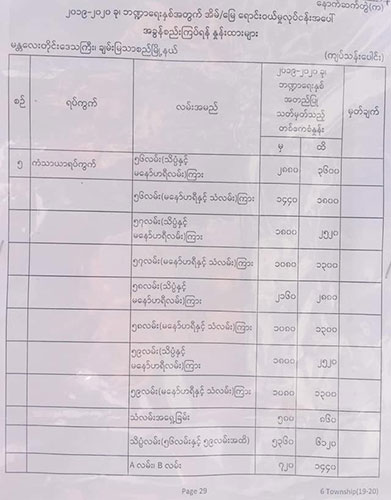 နောက်ဆက်တွဲ(က)
၂၀၁၉-၂၀၂၀ ခု၊ ဘဏ္ဍာရေးနှစ်အတွက် အိမ်/မြေ ရောင်းဝယ်မှုလုပ်ငန်းအပေါ်
အခွန်စည်းကြပ်ရန် နှုန်းထားများ
မန္တလေးတိုင်းဒေသကြီး၊ ချမ်းမြသာစည်မြို့နယ်
(ကျပ်သန်းပေါင်း)
စဉ် ရပ်ကွက် လမ်းအမည် ၂၀၁၉-၂၀၂၀ ခု၊ မှတ်ချက်
ဘဏ္ဍာရေးနှစ်
အတည်ပြု
သတ်မှတ်သည့်
တစ်ဧကနှုန်း
မှ ထိ
၅ ကံသာယာရပ်ကွက် ၅၆လမ်း(သိပ္ပံနှင့်
မနော်ဟရီလမ်း)ကြား ၂၈၈၀ ၃၆၀၀
၅၆လမ်း(မနော်ဟရီနှင့် သံလမ်း)ကြား ၁၄၄၀ ၁၈၀၀
၅၇လမ်း(သိပ္ပံနှင့်
မနော်ဟရီလမ်း)ကြား ၁၈၀၀ ၂၅၂၀
၅၇လမ်း(မနော်ဟရီနှင့် သံလမ်း)ကြား ၁၀၈၀ ၁၃၀၀
၅၈လမ်း(သိပ္ပံနှင့်
မနော်ဟရီလမ်း)ကြား ၂၁၆၀ ၂၈၀၀
၅၈လမ်း(မနော်ဟရီနှင့် သံလမ်း)ကြား ၁၀၈၀ ၁၃၀၀
၅၉လမ်း(သိပ္ပံနှင့်
မနော်ဟရီလမ်း)ကြား ၁၈၀၀ ၂၅၂၀
၅၉လမ်း(မနော်ဟရီနှင့် သံလမ်း)ကြား ၁၀၈၀ ၁၃၀၀
သံလမ်းအရှေ့ခြမ်း ၅၀၀ ၈၆၀
သိပ္ပံလမ်း(၅၆လမ်းနှင့် ၅၉လမ်းအထိ) ၅၃၆၀ ၆၁၂၀
A လမ်း၊ B လမ်း ၇၂၀ ၁၄၄၀
Page 29
6 Township(19-20)